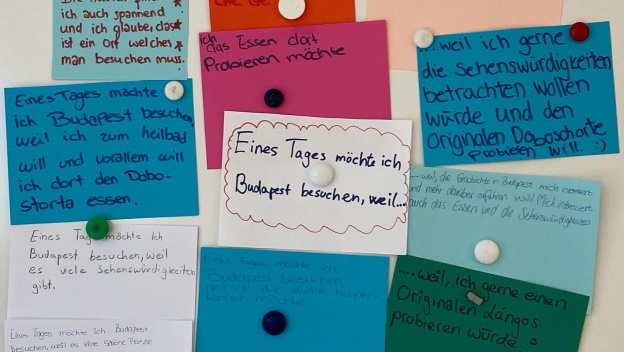 ich auch spannend
und ich glaube, das
ist ein Ort welches
man besuchen muss.
ich
das Essen dort
Probieren möchte
... weil ich gerne
die Sehenswürdigkeiten
betrachten wollen
würde und den
Originalen Daboschorte
probieren will. :)
Eines Tages möchte
ich Budapest besuchen,
weil ich zum heilbad
will und vorallem will
ich dort den Dobo-
storta essen.
Eines Tages möchte ich
Budapest besuchen, weil...
.... weil, die Geschichte in Budapest mich interessiert
und mehr darüber erfahren will! Mich interessiert
auch das Essen und die Sehenswürdigkeiten
Eines Tages möchte Ich
Budapest besuchen, weil
es viele Sehenswürdigkeiten
gibt.
Eines Tages möchte ich
Budapest besuchen,
weil ich die Kultur kennen-
lernen möchte
.... weil, ich gerne einen
Originalen Lángos
probieren würde
Eines Tages möchte Ich Budapest
besuchen, weil es viele schöne Plätze